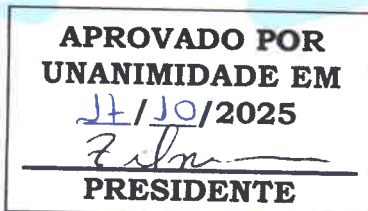 APROVADO POR
UNANIMIDADE EM
17/10/2025
PRESIDENTE